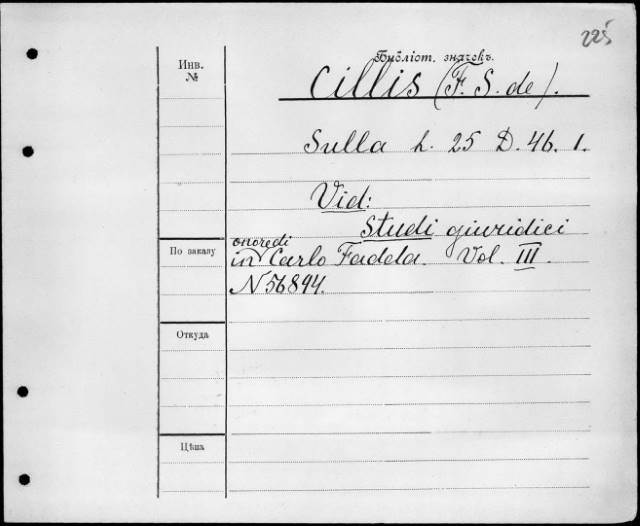 225
Инв.
№
Библіот. значокъ.
Cillis (F. S. de).
Sulla L. 25 D. 46. 1.
Vid:
Studi giuridici
onore di
in Carlo Fadda. Vol. III.
N 56894.
По заказу
Откуда
Цѣна